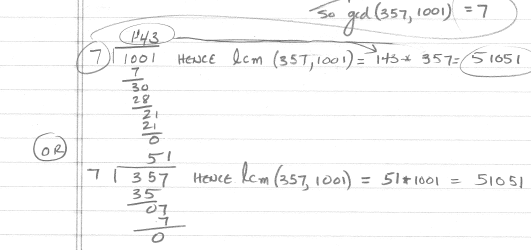 So gcd(357, 1001) = 7
143
7 1001 HENCE lcm (357, 1001) = 143 * 357 = 51051
7
30
28
21
21
0
OR
51
7 357 HENCE lcm (357, 1001) = 51 * 1001 = 51051
35
07
7
0